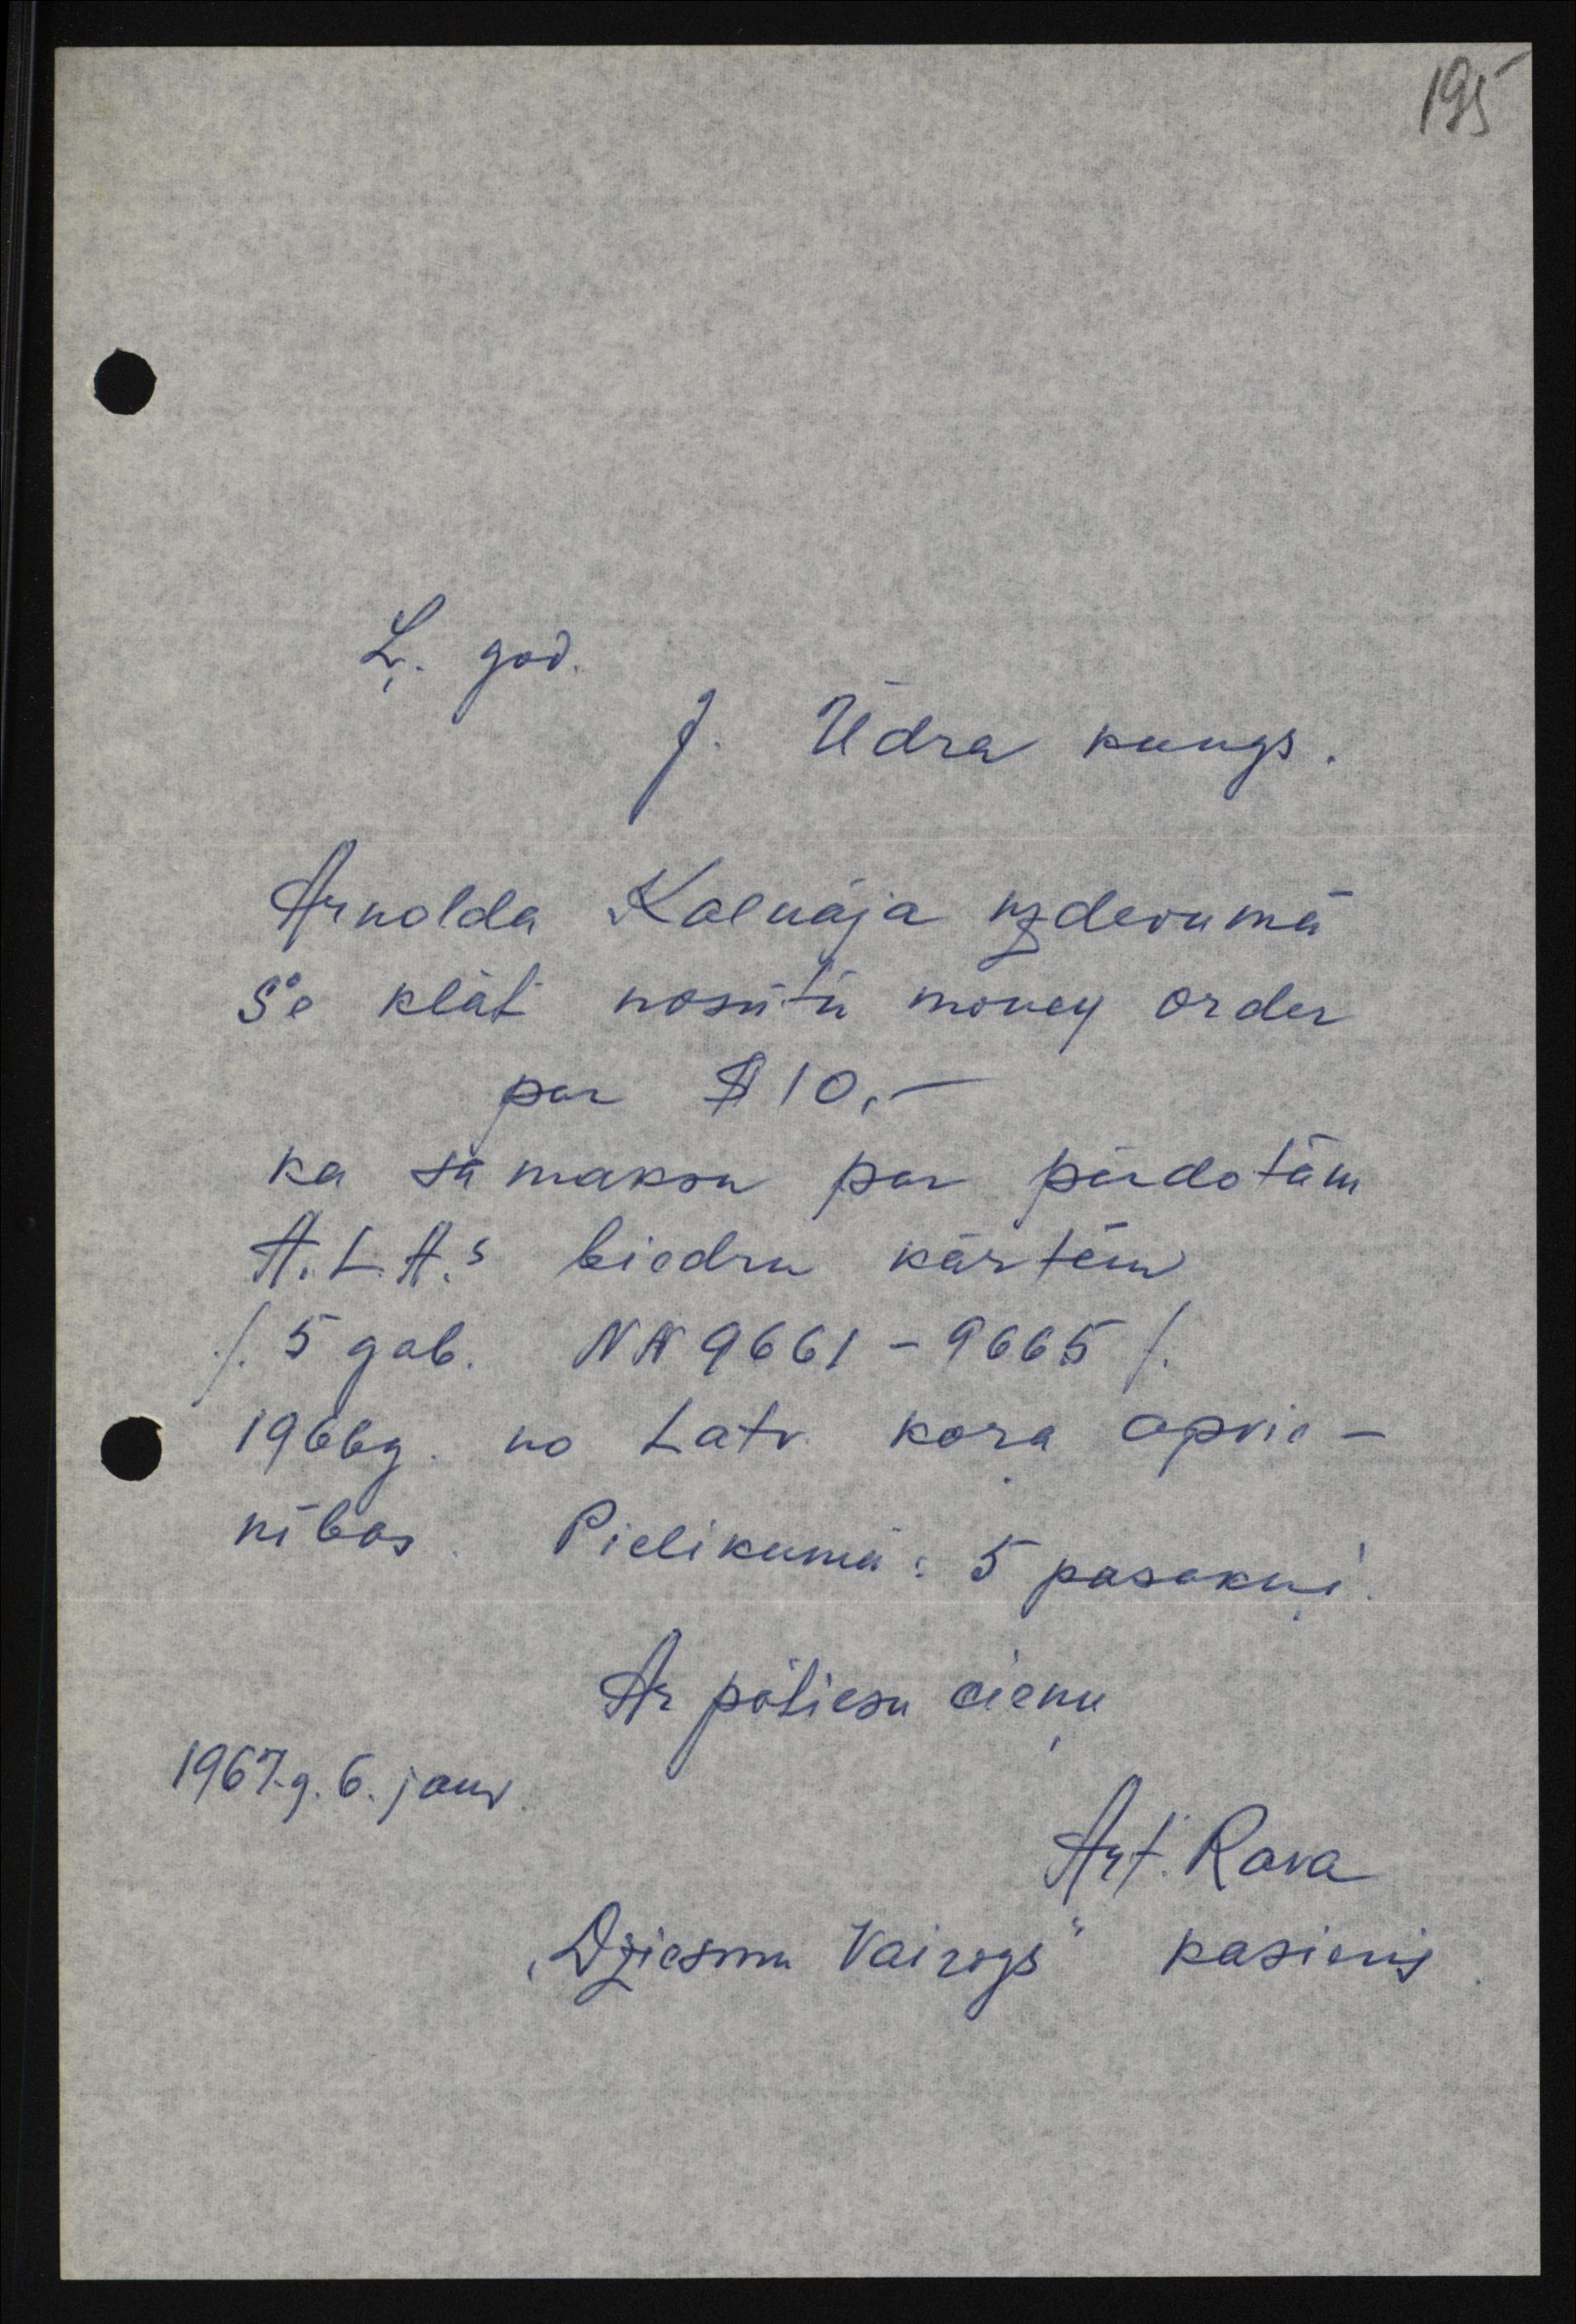 195
Ļ. god.
J. Ūdra kungs.
Arnolda Kalnāja uzdevumā
še klāt nosūtu money order
par $10,-
ka samaksu par pārdotām
A.L.A.s biedru kārtēm
/. 5 gab. NN 9661 - 9665 /.
1966g. no Latv. kora apvie-
nības. Pielikumā: 5 pasakņi.
Ar patiesu cieņu
1967.g. 6. janv.
Art. Rava
"Dziesmu Vairogs" kasieris